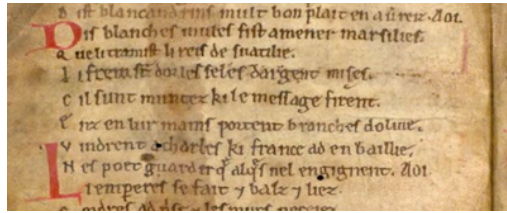 D ist blancandrins mult bon plait en aureiz. Aoi.
Dis blanches mules fist amener marsilies.
Que li tramist li reis de suatilie.
Li frein sunt dor les seles dargent mises.
Cil sunt muntez ki le message firent.
Enz en lur mains portent branches dolive.
Vindrent a charles ki france ad en baillie.
Nes poet guarder que alques nel engignent. Aoi
Li emperes se fait 7 balz 7 liez.